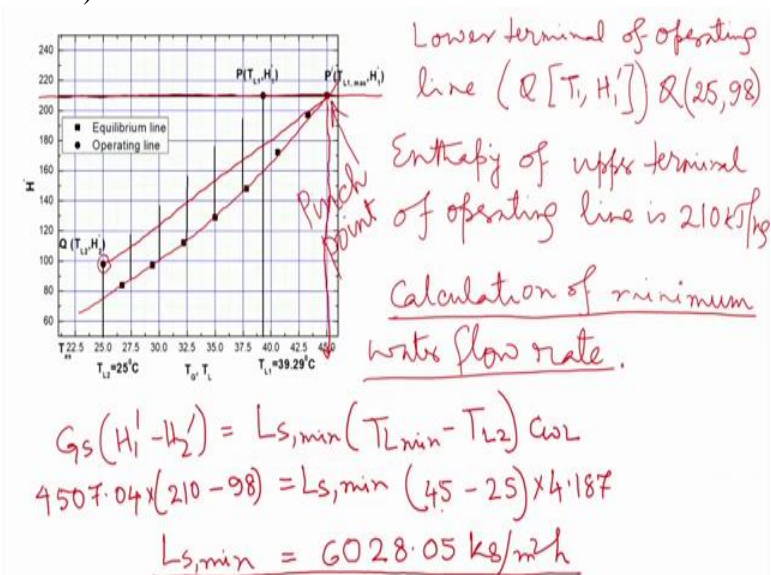 240
220
200
180
160
140
120
100
80
60
H'
P(T_L1,H'_1)
P'(T_L1,max,H'_1)
■ Equilibrium line
● Operating line
Q (T_L2,H'_2)
22.5 25.0 27.5 30.0 32.5 35.0 37.5 40.0 42.5 45.0
T_L2=25°C
T_G, T_L
T_L1=39.29°C
Pinch
point
Lower terminal of operating
line (Q [T_1, H_1']) Q(25,98)
Enthalpy of upper terminal
of operating line is 210 kJ/kg
Calculation of minimum
water flow rate.
Gs(H_1' - H_2') = Ls,min (T_Lmin - T_L2) C_WL
4507.04×(210 - 98) = Ls,min (45 - 25)×4.187
Ls,min = 6028.05 kg/m²h